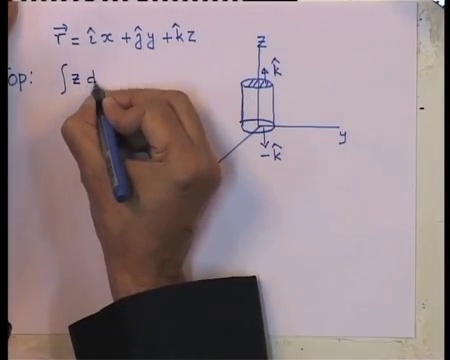 r⃗ = îx + ĵy + k̂z
op: ∫z d
z
k̂
y
-k̂